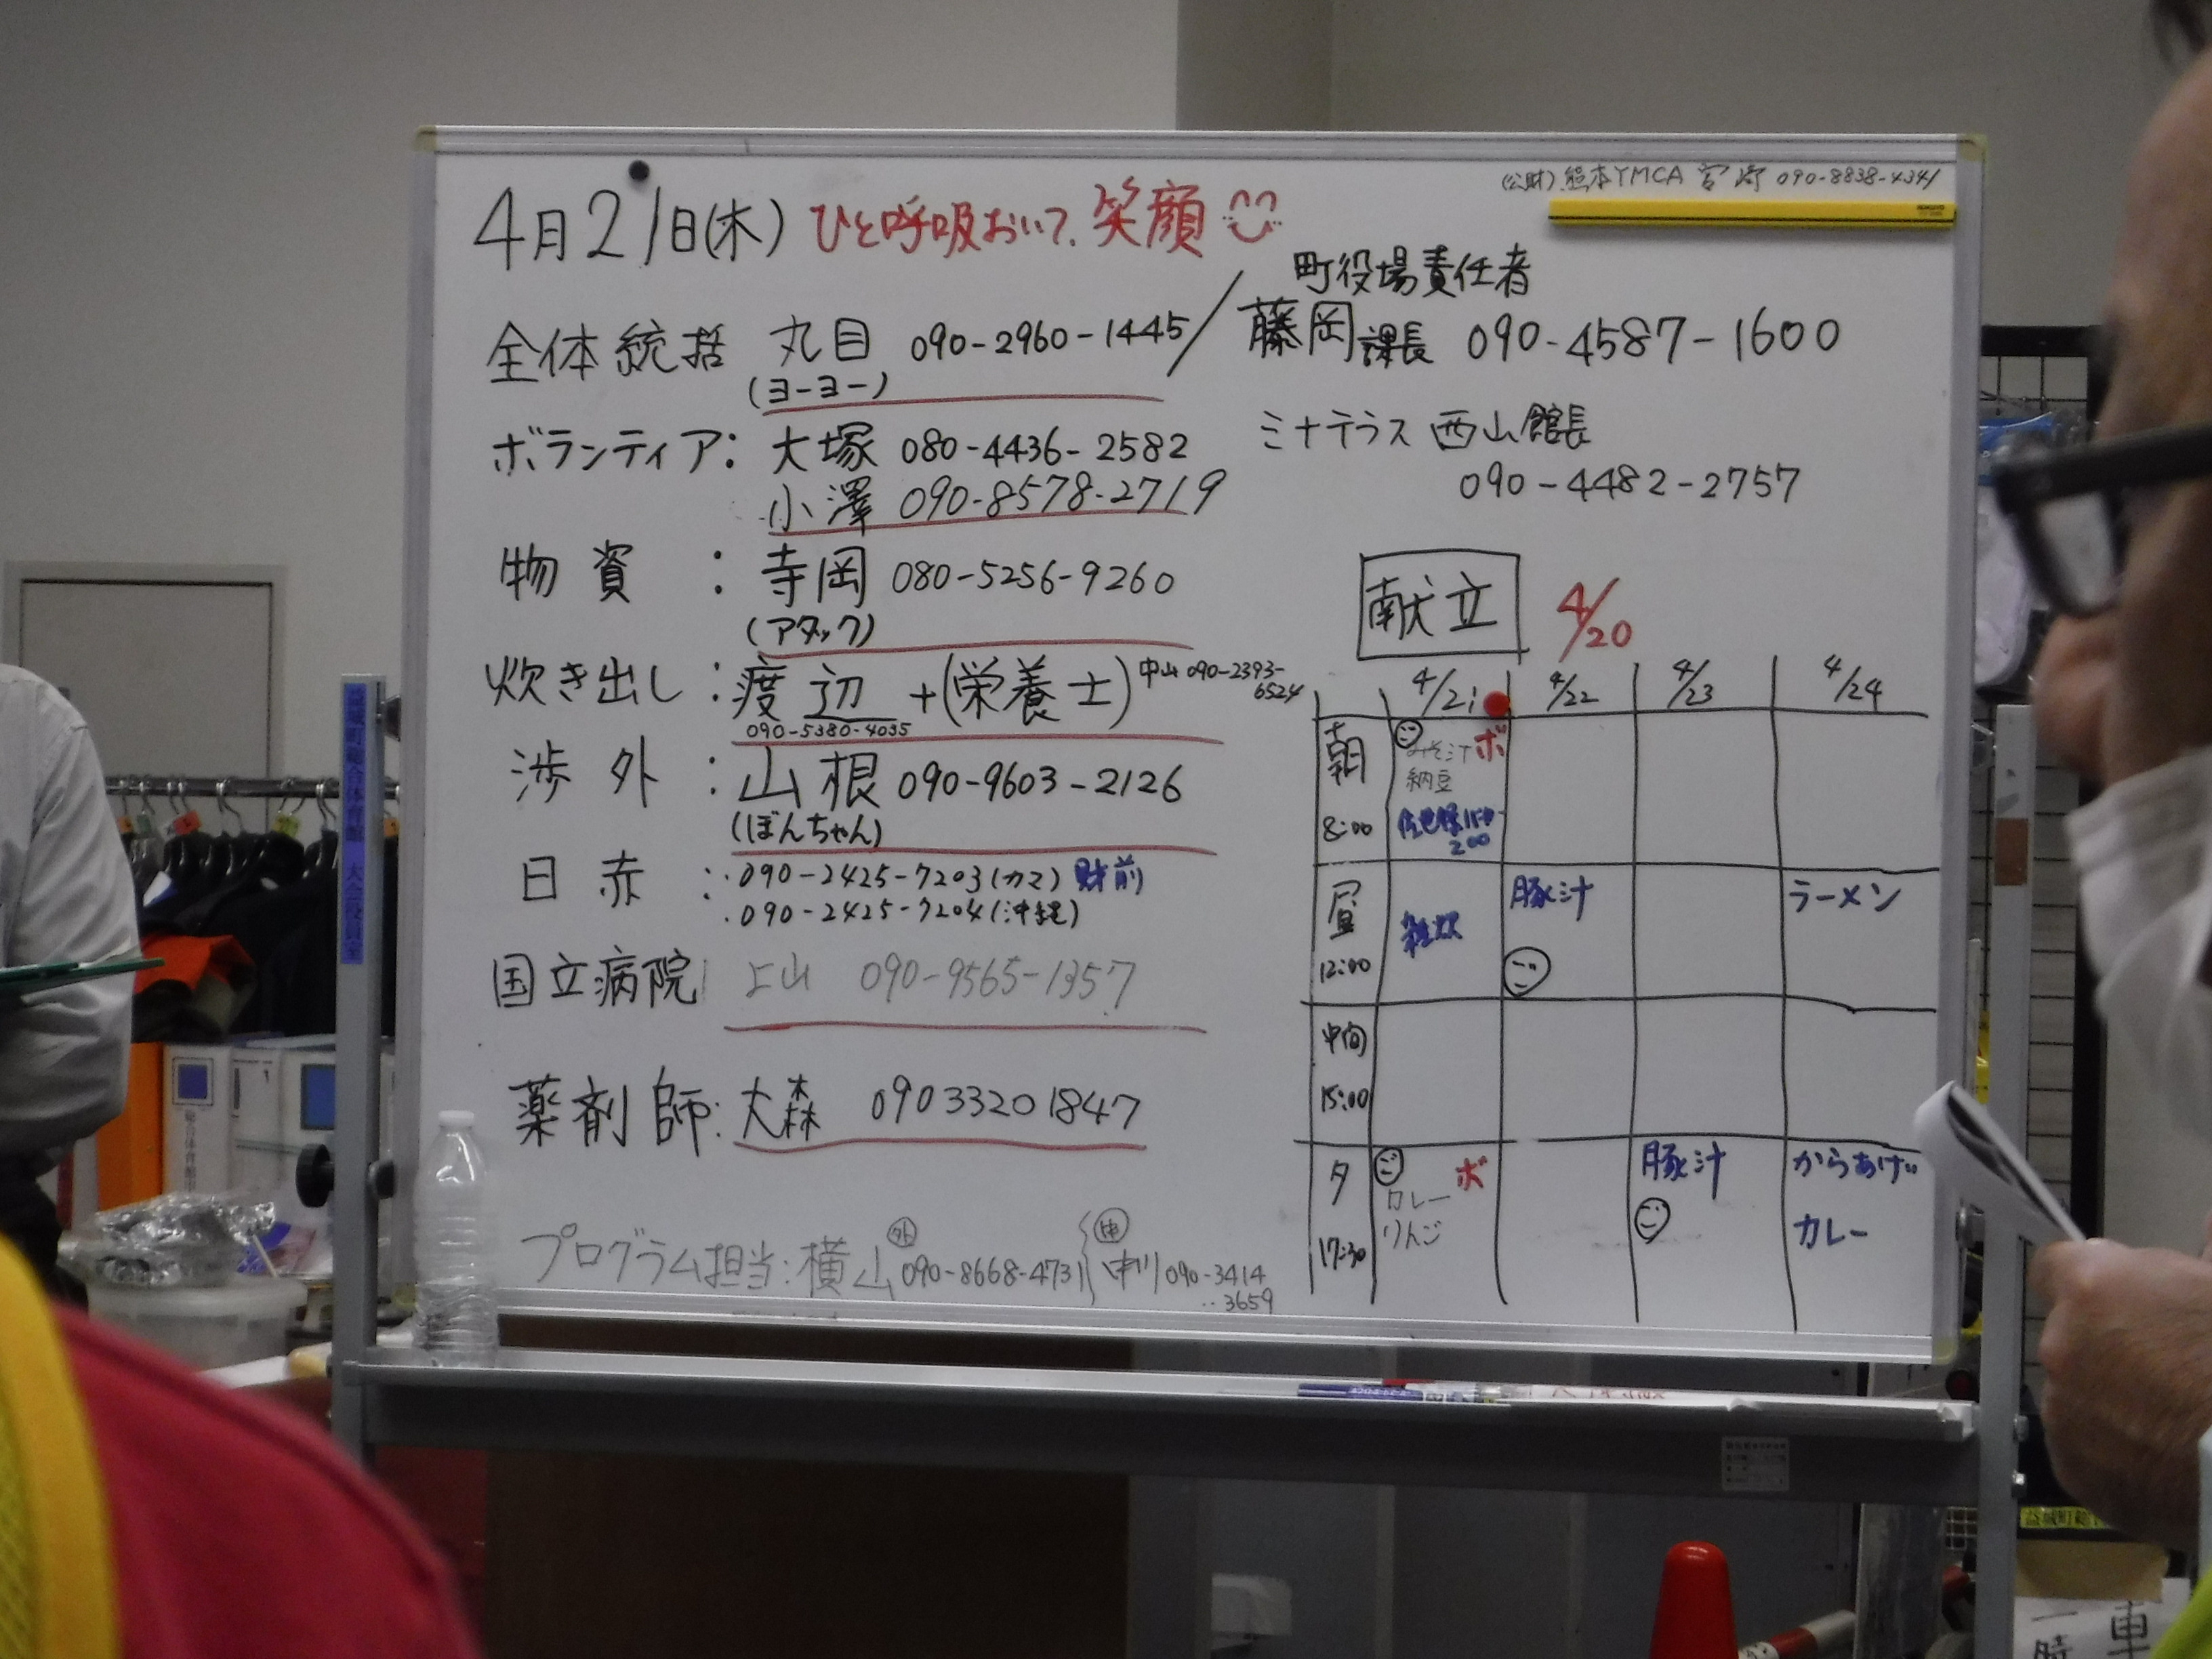 (公財)熊本YMCA 宮崎 090-8838-4341
4月21日(木) ひと呼吸おいて、笑顔
町役場責任者
全体統括 丸目 090-2960-1445 / 藤岡課長 090-4587-1600
(ヨーヨー)
ボランティア: 大塚 080-4436-2582
ミナテラス 西山館長
小澤 090-8578-2719
090-4482-2757
物資 : 寺岡 080-5256-9260
(アタック)
炊き出し : 渡辺 +(栄養士) 中山 090-2393-
6524
090-5380-4035
渉外 : 山根 090-9603-2126
(ぼんちゃん)
日赤 : ・090-2425-7203(カマ) 財前
・090-2425-7204(沖縄)
国立病院 上山 090-9565-1357
薬剤師: 大森 09033201847
プログラム担当: 横山 外 090-8668-4731 中川 090-3414
3659
献立 4/20
4/21 4/22 4/23 4/24
朝 みそ汁 ボ
納豆
8:00 佐世保バーガー
200
昼 雑炊 豚汁 ラーメン
12:00
中間
15:00
夕 カレー ボ 豚汁 からあげ
りんご カレー
17:30
益城町総合体育館 大会役員室